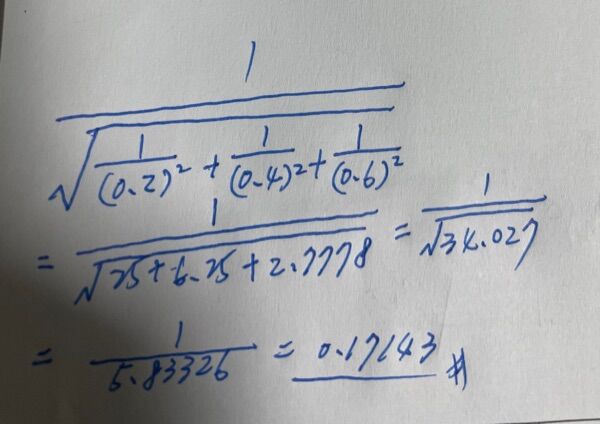 1
√(1/(0.2)² + 1/(0.4)² + 1/(0.6)²)
= 1/√(25 + 6.25 + 2.7778) = 1/√34.027
= 1/5.83326 = 0.17143 #